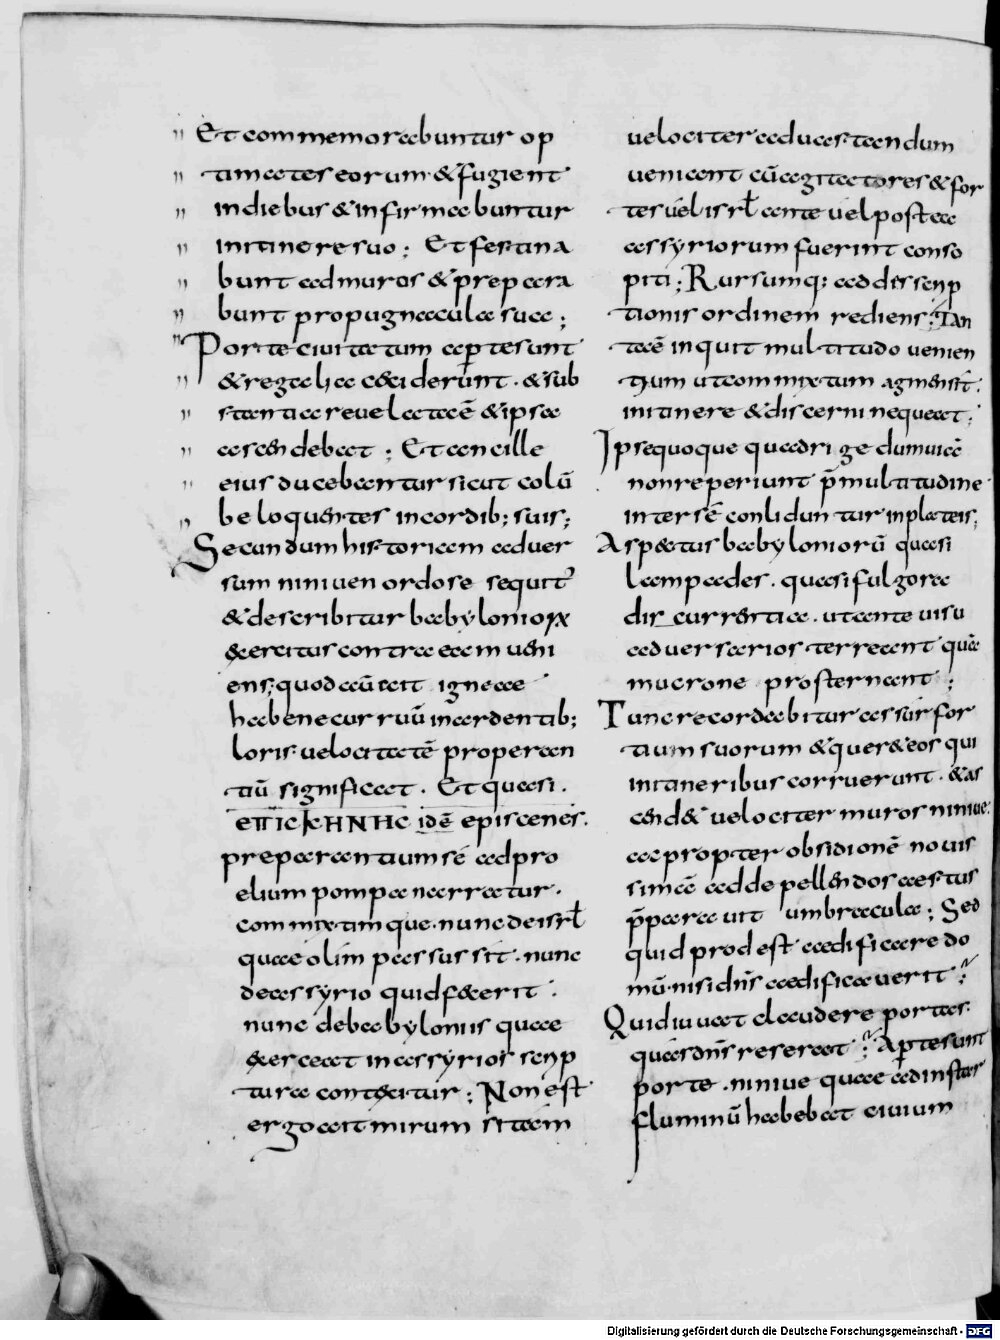 Et commemorabuntur op
timates eorum & fugient
in diebus & infirmabuntur
initinere suo; Et festina
bunt ad muros & prepara
bunt propugnacula sua;
Porte civitatum aperte sunt
& regalia c&ciderunt. & sub
stantia revelatacē & ipsa
ascendebat; Et ancille
eius ducebantur sicut colū
be loquentes in cordib; suis;
Secundum historiam adver
sum niniven ordo se sequit̄
& describitur babylonioꝝ
exercitus contra eam veni
ens; quod aūt ait igneae
habene curruū in ardentib;
loris velocitatē properan
tiū significat. Et quasi.
ΕΠΙCΚΗΝΗC idē episcenes.
preparantium sē ad pro
elium pompa narratur.
commixtimque. nunc de isrl̄
quae olim passus sit. nunc
de assyrio quid fecerit.
nunc de babyloniis quae
exerceat in assyrios scrip
tura contexitur; Non est
ergo ait mirum si tam
velociter ad vastandum
veniant cū agitatores & for
tes vel isrl̄ ante vel postea
assyriorum fuerint conso
piti; Rursumq; ad descrip
tionis ordinem rediens; Tan
ta ē inquit multitudo venien
tium ut commixtum agmen sit.
initinere & discerni nequeat;
Ipse quoque quadrige dum viā
non reperiunt p̄ multitudine
inter sē conliduntur in plateis;
Aspectus babyloniorū quasi
lampades. quasi fulgora
discurrentia. ut ante visu
adversarios terreant quā
mucrone prosternant;
Tunc recordabitur assur for
tium suorum & quer& eos qui
initineribus corruerunt. & as
cend& velociter muros ninive.
ac propter obsidionē novis
simā ad depellendos aestus
p̄paravit umbracula; Sed
quid prodest aedificare do
mū. nisi dn̄s aedificaverit;
Quid iuvat claudere portas
quas dn̄s reserat; Apte sunt
porte. ninive quae ad instar
fluminū habebat civium
Digitalisierung gefördert durch die Deutsche Forschungsgemeinschaft - DFG